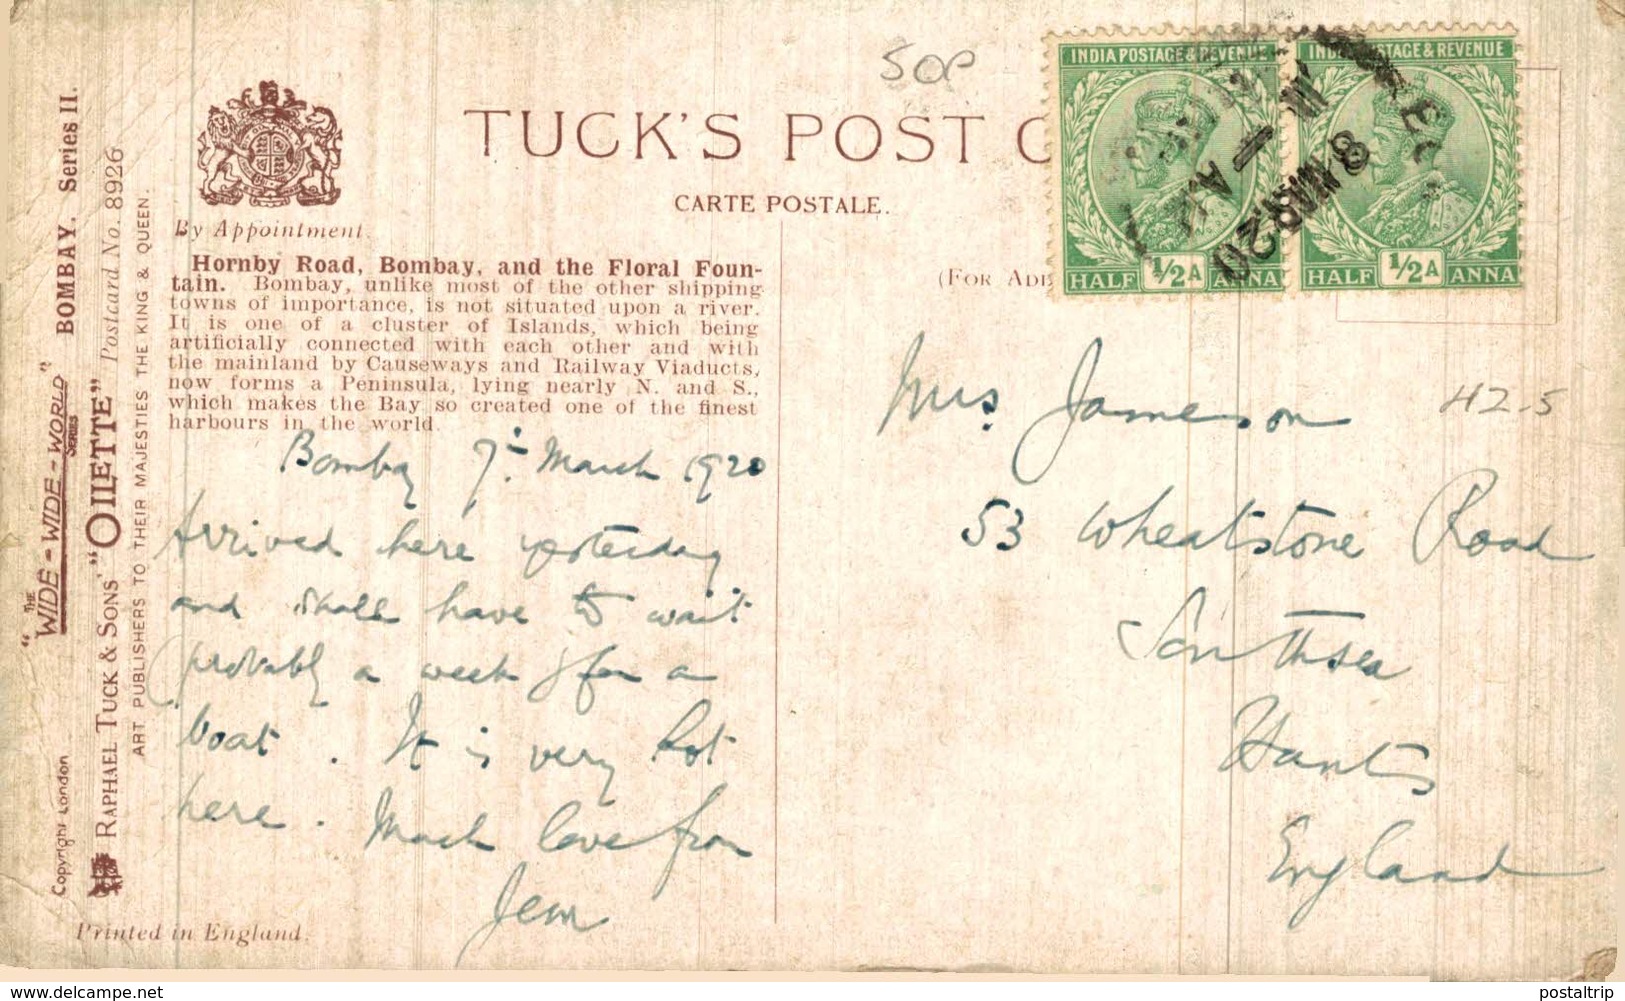 "THE
WIDE-WIDE-WORLD"
SERIES
BOMBAY. Series II.
Copyright London
RAPHAEL TUCK & SONS' "OILETTE" Postcard No. 8926
ART PUBLISHERS TO THEIR MAJESTIES THE KING & QUEEN.
By Appointment.
TUCK'S POST C
CARTE POSTALE.
Hornby Road, Bombay, and the Floral Foun-
tain. Bombay, unlike most of the other shipping
towns of importance, is not situated upon a river.
It is one of a cluster of Islands, which being
artificially connected with each other and with
the mainland by Causeways and Railway Viaducts,
now forms a Peninsula, lying nearly N. and S.,
which makes the Bay so created one of the finest
harbours in the world.
Bombay 7th March 1920
Arrived here yesterday
and shall have to wait
probably a week for a
boat. It is very hot
here. Much love from
Jem
Printed in England.
50P
(FOR ADD
INDIA POSTAGE & REVENUE
HALF 1/2A ANNA
INDIA POSTAGE & REVENUE
HALF 1/2A ANNA
8 MAR 20
Mrs Jameson
H2-5
53 Wheatstone Road
Southsea
Hants
England
https://www.delcampe.net
postaltrip